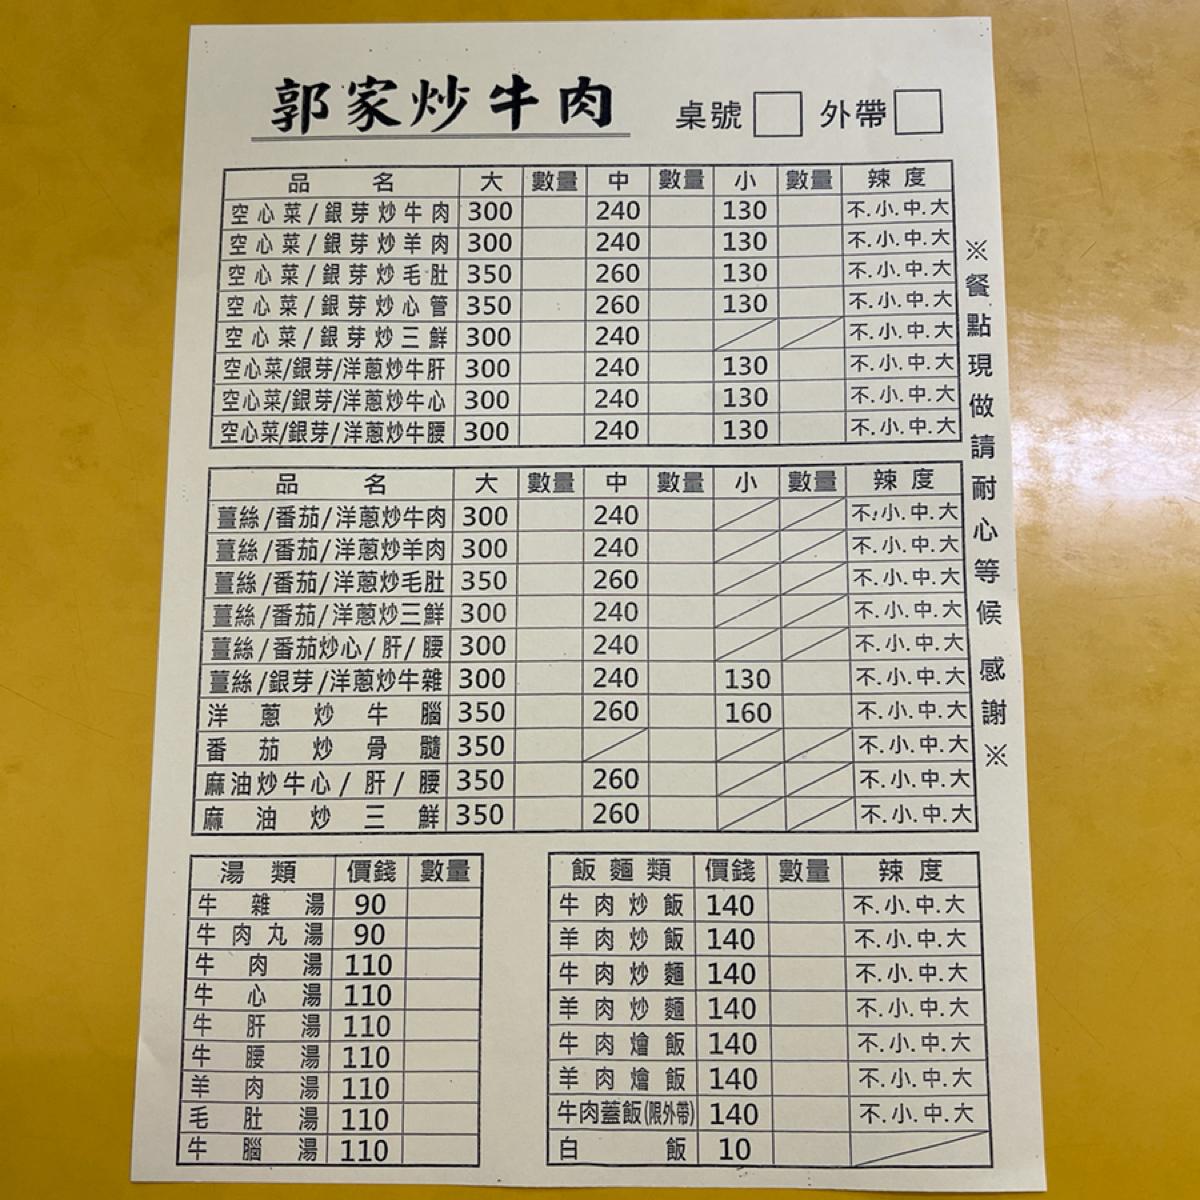 郭家炒牛肉 桌號 外帶
品名 大 數量 中 數量 小 數量 辣度
空心菜/銀芽炒牛肉 300 240 130 不.小.中.大
空心菜/銀芽炒羊肉 300 240 130 不.小.中.大
空心菜/銀芽炒毛肚 350 260 130 不.小.中.大
空心菜/銀芽炒心管 350 260 130 不.小.中.大
空心菜/銀芽炒三鮮 300 240 不.小.中.大
空心菜/銀芽/洋蔥炒牛肝 300 240 130 不.小.中.大
空心菜/銀芽/洋蔥炒牛心 300 240 130 不.小.中.大
空心菜/銀芽/洋蔥炒牛腰 300 240 130 不.小.中.大
品名 大 數量 中 數量 小 數量 辣度
薑絲/番茄/洋蔥炒牛肉 300 240 不.小.中.大
薑絲/番茄/洋蔥炒羊肉 300 240 不.小.中.大
薑絲/番茄/洋蔥炒毛肚 350 260 不.小.中.大
薑絲/番茄/洋蔥炒三鮮 300 240 不.小.中.大
薑絲/番茄炒心/肝/腰 300 240 不.小.中.大
薑絲/銀芽/洋蔥炒牛雜 300 240 130 不.小.中.大
洋蔥炒牛腦 350 260 160 不.小.中.大
番茄炒骨髓 350 不.小.中.大
麻油炒牛心/肝/腰 350 260 不.小.中.大
麻油炒三鮮 350 260 不.小.中.大
※餐點現做請耐心等候 感謝※
湯類 價錢 數量
牛雜湯 90
牛肉丸湯 90
牛肉湯 110
牛心湯 110
牛肝湯 110
牛腰湯 110
羊肉湯 110
毛肚湯 110
牛腦湯 110
飯麵類 價錢 數量 辣度
牛肉炒飯 140 不.小.中.大
羊肉炒飯 140 不.小.中.大
牛肉炒麵 140 不.小.中.大
羊肉炒麵 140 不.小.中.大
牛肉燴飯 140 不.小.中.大
羊肉燴飯 140 不.小.中.大
牛肉蓋飯(限外帶) 140 不.小.中.大
白飯 10